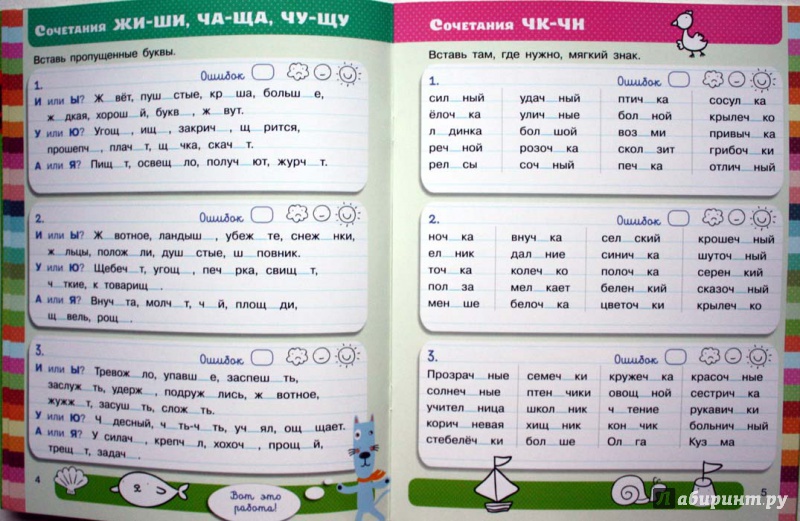 Сочетания ЖИ-ШИ, ЧА-ЩА, ЧУ-ЩУ
Вставь пропущенные буквы.
1.
Ошибок
И или Ы? Ж__вёт, пуш__стые, кр__ша, больш__е,
ж__дкая, хорош__й, букв__, ж__вут.
У или Ю? Угощ__, ищ__, закрич__, щ__рится,
прошепч__, плач__т, щ__чка, скач__т.
А или Я? Пищ__т, освещ__ло, получ__ют, журч__т.
2.
Ошибок
И или Ы? Ж__вотное, ландыш__, убеж__те, снеж__нки,
ж__льцы, полож__ли, душ__стые, ш__повник.
У или Ю? Щебеч__т, угощ__, печ__рка, свищ__т,
ч__ткие, к товарищ__.
А или Я? Внуч__та, молч__т, ч__й, площ__ди,
щ__вель, рощ__.
3.
Ошибок
И или Ы? Тревож__ло, упавш__е, заспеш__ть,
заслуж__ть, удерж__, подруж__лись, ж__вотное,
жужж__т, засуш__ть, слож__ть.
У или Ю? Ч__десный, ч__ть-ч__ть, уч__ял, ощ__щает.
А или Я? У силач__, крепч__л, хохоч__, прощ__й,
трещ__т, задач__.
4
Вот это
работа!
Сочетания ЧК-ЧН
Вставь там, где нужно, мягкий знак.
1.
Ошибок
сил__ный удач__ный птич__ка сосул__ка
ёлоч__ка улич__ные бол__ной крылеч__ко
л__динка бол__шой воз__ми привыч__ка
реч__ной розоч__ка скол__зит грибоч__ки
рел__сы соч__ный печ__ка отлич__ный
2.
Ошибок
ноч__ка внуч__ка сел__ский крошеч__ный
ел__ник дал__ние синич__ка шуточ__ный
точ__ка колеч__ко полоч__ка серен__кий
пол__за мел__кает белен__кий сказоч__ный
мен__ше белоч__ка цветоч__ки крылеч__ко
3.
Ошибок
Прозрач__ные семеч__ки кружеч__ка красоч__ные
солнеч__ные птен__чики овощ__ной сестрич__ка
учител__ница школ__ник ч__тение рукавич__ки
корич__невая хищ__ник кон__чик больнич__ный
стебелёч__ки бол__ше Ол__га Куз__ма
5
Лабиринт.ру